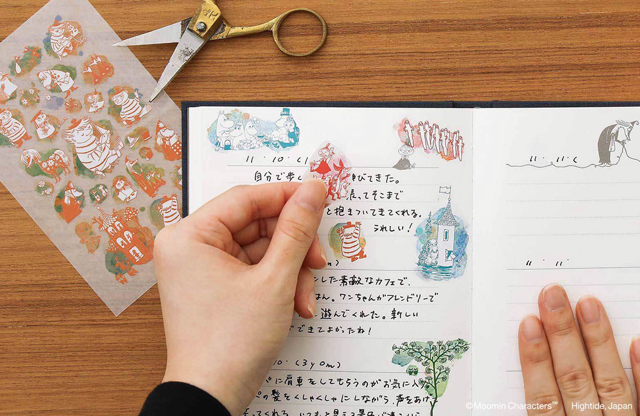 11・10・(
自分で歩
びてきた。
張ってそこまで
と抱きついてきてくれる。
うれしい!
m)
ンした素敵なカフェで、
はん。ワンちゃんがフレンドリーで
遊んでくれた。新しい
できてよかったね!
10・(3y0m)
きに肩車をしてもらうのがお気に入
の髪をくしゃくしゃにしながら、声をあげ
てくれる。
11・11・(
11・11・
©Moomin Characters™ Hightide, Japan